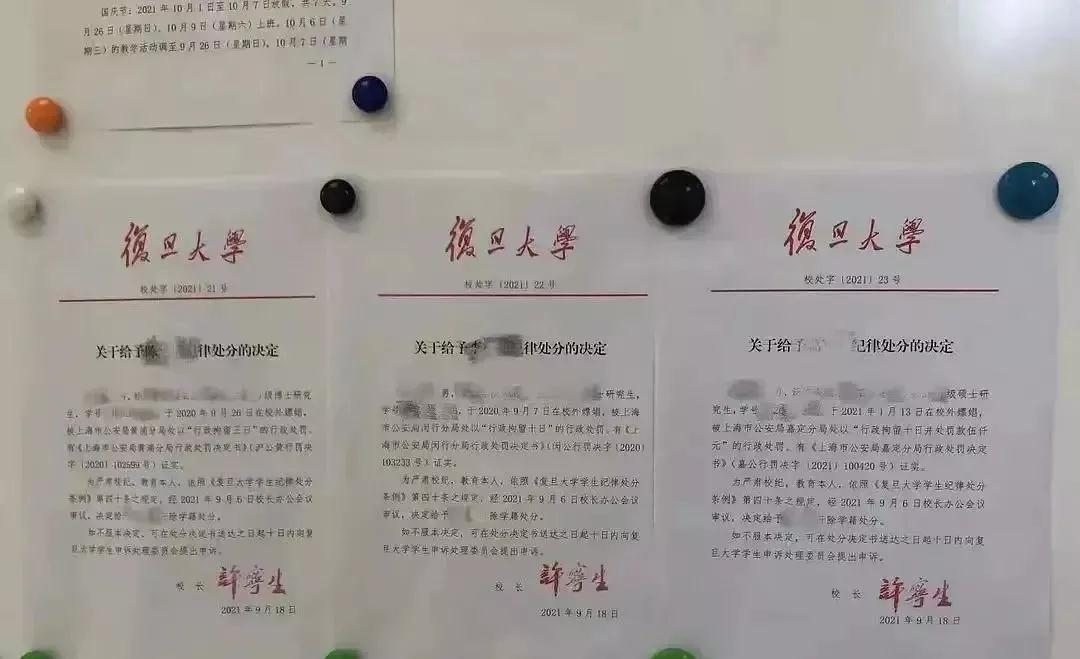 国庆节：2021年10月1日至10月7日放假，共7天。9
月26日（星期日）、10月9日（星期六）上班。10月6日（星
期三）的教学活动调至9月26日（星期日）、10月7日（星期
— 1 —
復旦大學
校处字〔2021〕21号
关于给予陈 纪律处分的决定
级博士研究
生，学号 于2020年9月26日在校外嫖娼，
被上海市公安局黄浦分局处以“行政拘留三日”的行政处罚。
有《上海市公安局黄浦分局行政处罚决定书》（沪公黄行罚决
字〔2020〕102599号）证实。
为严肃校纪，教育本人，依照《复旦大学学生纪律处分
条例》第四十条之规定，经2021年9月6日校长办公会议
审议，决定给予 除学籍处分。
如不服本决定，可在处分决定书送达之日起十日内向复
旦大学学生申诉处理委员会提出申诉。
校 长 許寧生
2021年9月18日
復旦大學
校处字〔2021〕22号
关于给予李 纪律处分的决定
男， 士研究生，
学号 ，于2020年9月7日在校外嫖娼，被上海
市公安局闵行分局处以“行政拘留十日”的行政处罚。有《上
海市公安局闵行分局行政处罚决定书》（闵公行罚决字〔2020〕
103233号）证实。
为严肃校纪，教育本人，依照《复旦大学学生纪律处分
条例》第四十条之规定，经2021年9月6日校长办公会议
审议，决定给予 除学籍处分。
如不服本决定，可在处分决定书送达之日起十日内向复
旦大学学生申诉处理委员会提出申诉。
校 长 許寧生
2021年9月18日
復旦大學
校处字〔2021〕23号
关于给予 纪律处分的决定
级硕士研
究生，学号 于2021年1月13日在校外嫖娼，
被上海市公安局嘉定分局处以“行政拘留十日并处罚款伍仟
元”的行政处罚。有《上海市公安局嘉定分局行政处罚决定
书》（嘉公行罚决字〔2021〕100420号）证实。
为严肃校纪，教育本人，依照《复旦大学学生纪律处分
条例》第四十条之规定，经2021年9月6日校长办公会议
审议，决定给予 除学籍处分。
如不服本决定，可在处分决定书送达之日起十日内向复
旦大学学生申诉处理委员会提出申诉。
校 长 許寧生
2021年9月18日